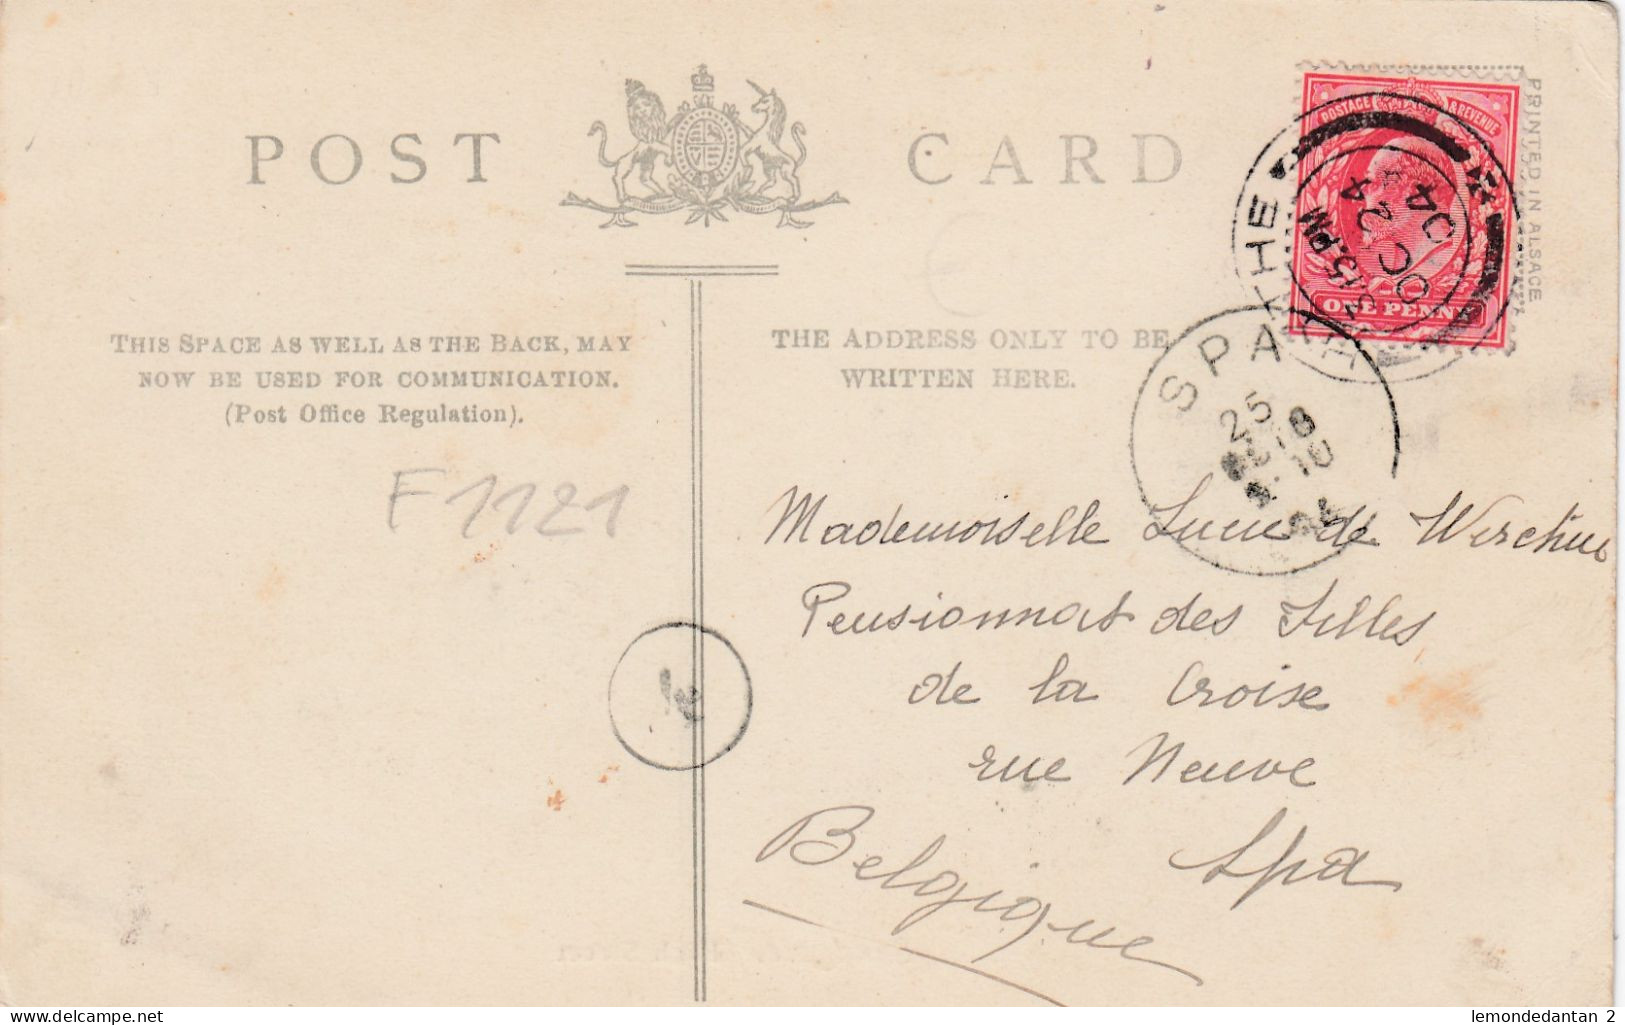 POST CARD
PRINTED IN ALSACE
POSTAGE & REVENUE
ONE PENNY
HYTHE
5.15.PM
OC 24
04
THIS SPACE AS WELL AS THE BACK, MAY
NOW BE USED FOR COMMUNICATION.
(Post Office Regulation).
THE ADDRESS ONLY TO BE
WRITTEN HERE.
SPA
25
F1121
Mademoiselle de
Pensionnat des Filles
de la Croise
rue Neuve
Spa
Belgique
lemondedantan 2
www.delcampe.net